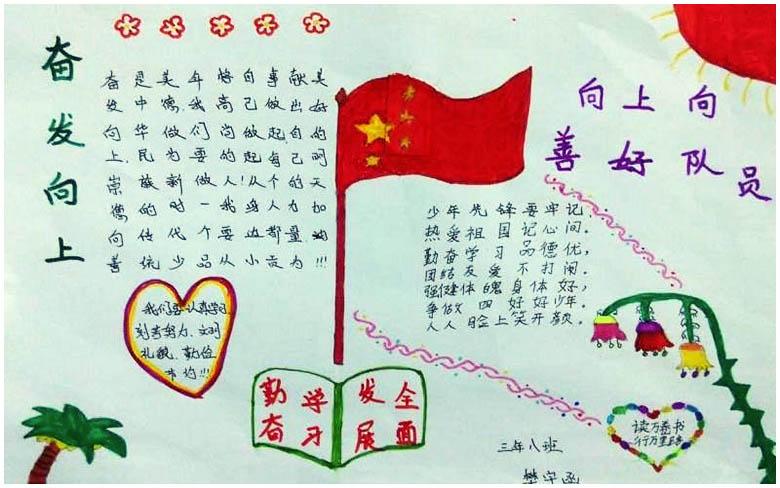 奋发向上
奋发向上崇德向善
是中华民族的传统
美德做为新时代少
年我们要做一个品
德高尚的人!我要从
自己做起从身边小
事做起每个人都贡
献出自己的力量为
美好的明天加油!!!
向上向
善好队员
少年先锋要牢记,
热爱祖国记心间。
勤奋学习品德优,
团结友爱不打闹。
强健体魄身体好,
争做四好好少年。
人人脸上笑开颜。
我们要认真学习
刻苦努力、文明
礼貌、勤俭
节约!!!
勤奋学习
发展全面
读万卷书
行万里路
三年八班
樊宇函